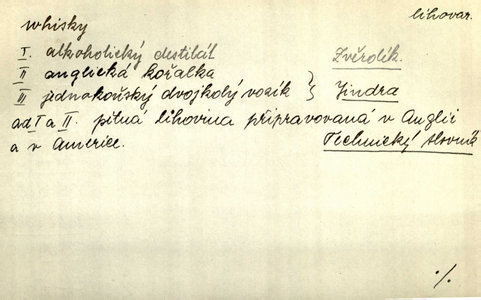 whisky lihovar.
I. alkoholický destilát Zvěrolík.
II anglická kořalka
III jednokoňský dvojkolý vozík } Jindra
ad I a II. pitná lihovina připravovaná v Anglii
a v Americe. Technický slovník
·/.